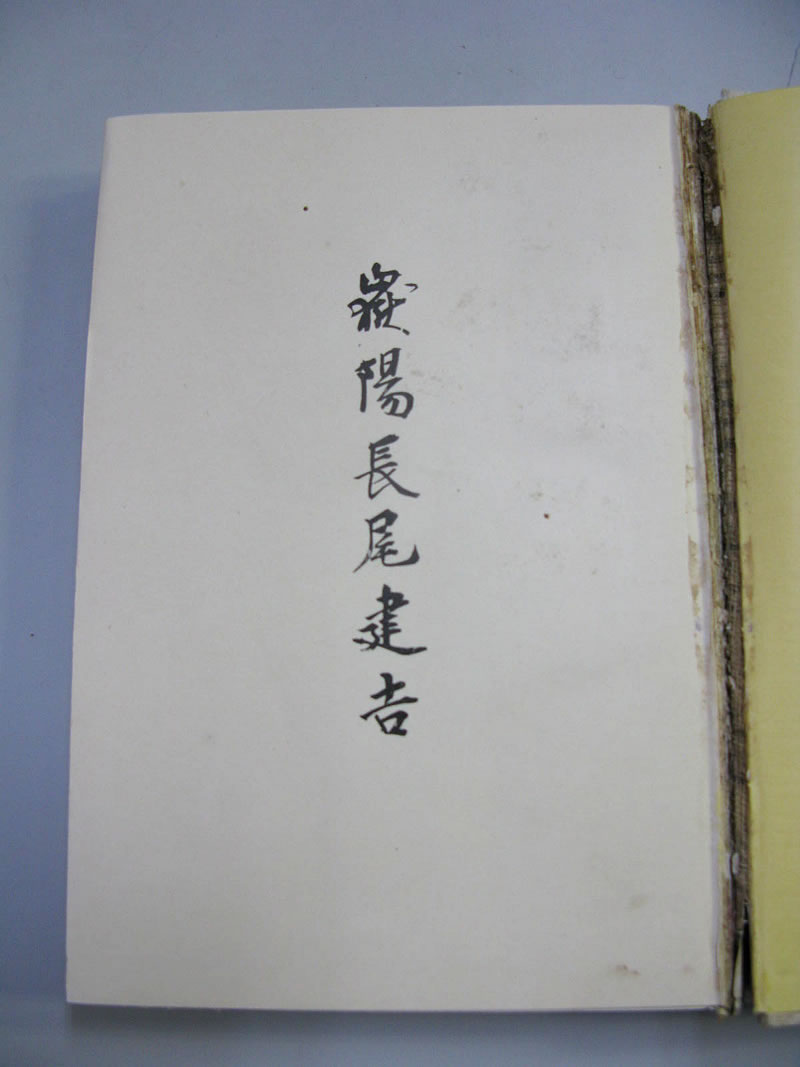 嶽陽長尾建吉